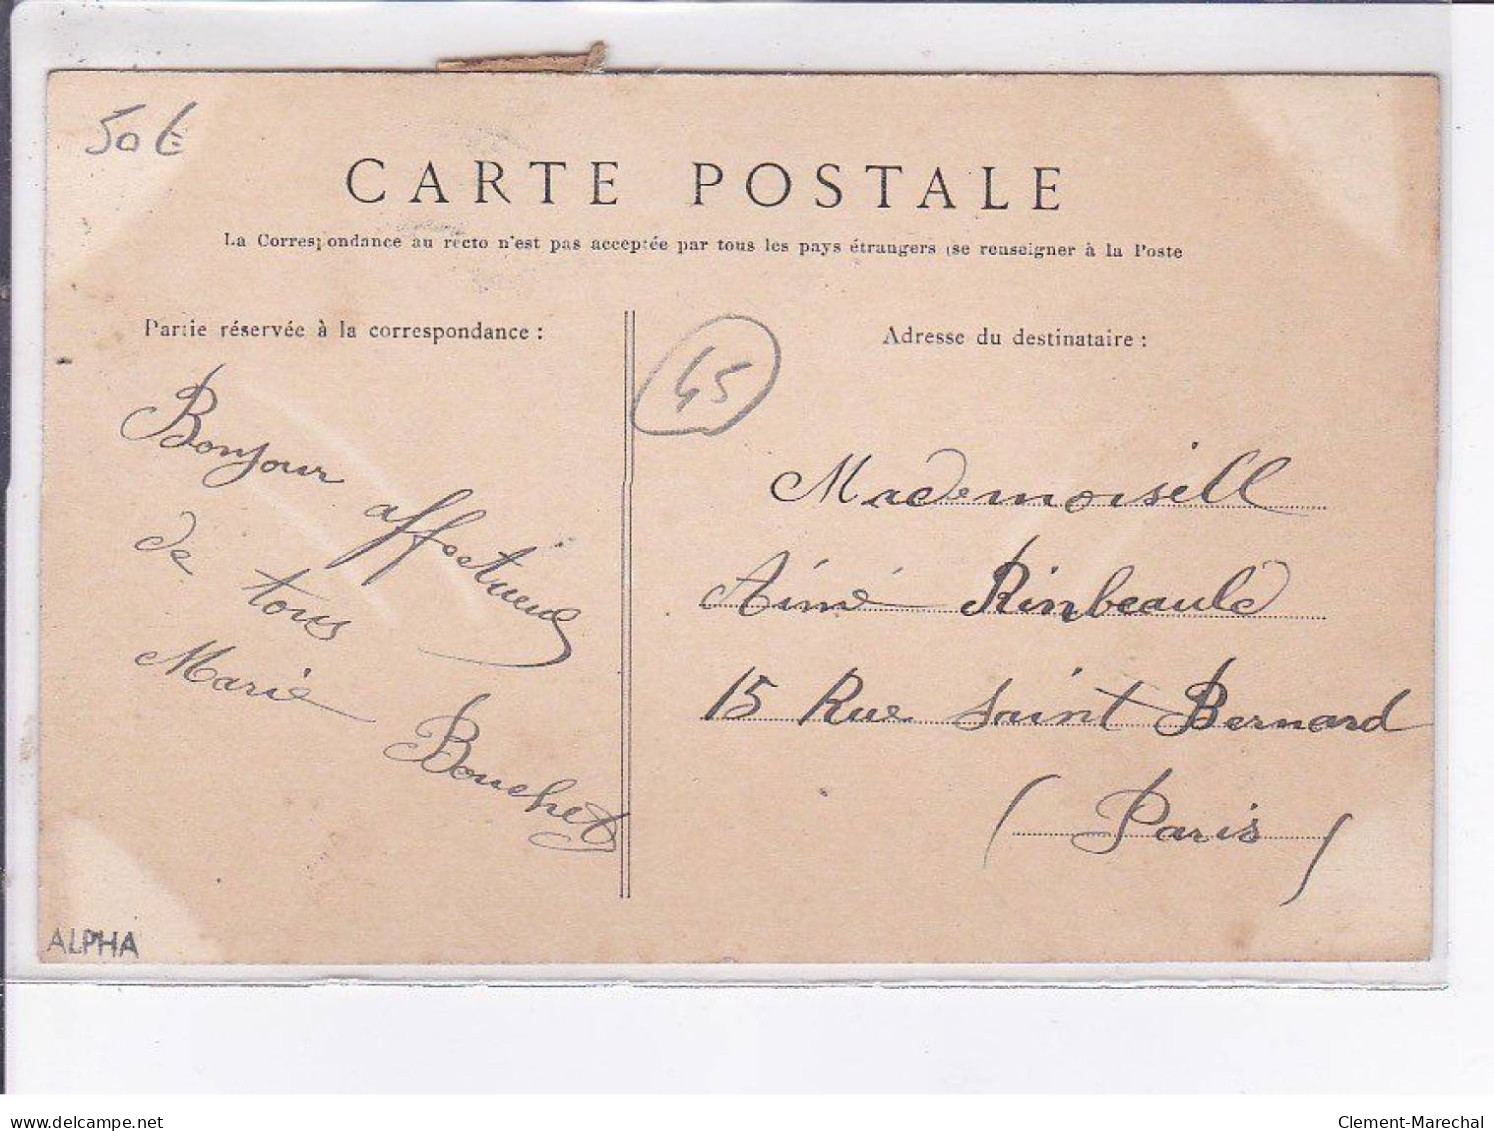 50 €
CARTE POSTALE
La Correspondance au recto n'est pas acceptée par tous les pays étrangers (se renseigner à la Poste
Partie réservée à la correspondance :
Bonjour affectueux
de tous
Marie Bouchet
45
Adresse du destinataire :
Mademoisell
Aimé Rinbeaulé
15 Rue Saint Bernard
( Paris )
ALPHA
delcampe.net
Clement-Marechal